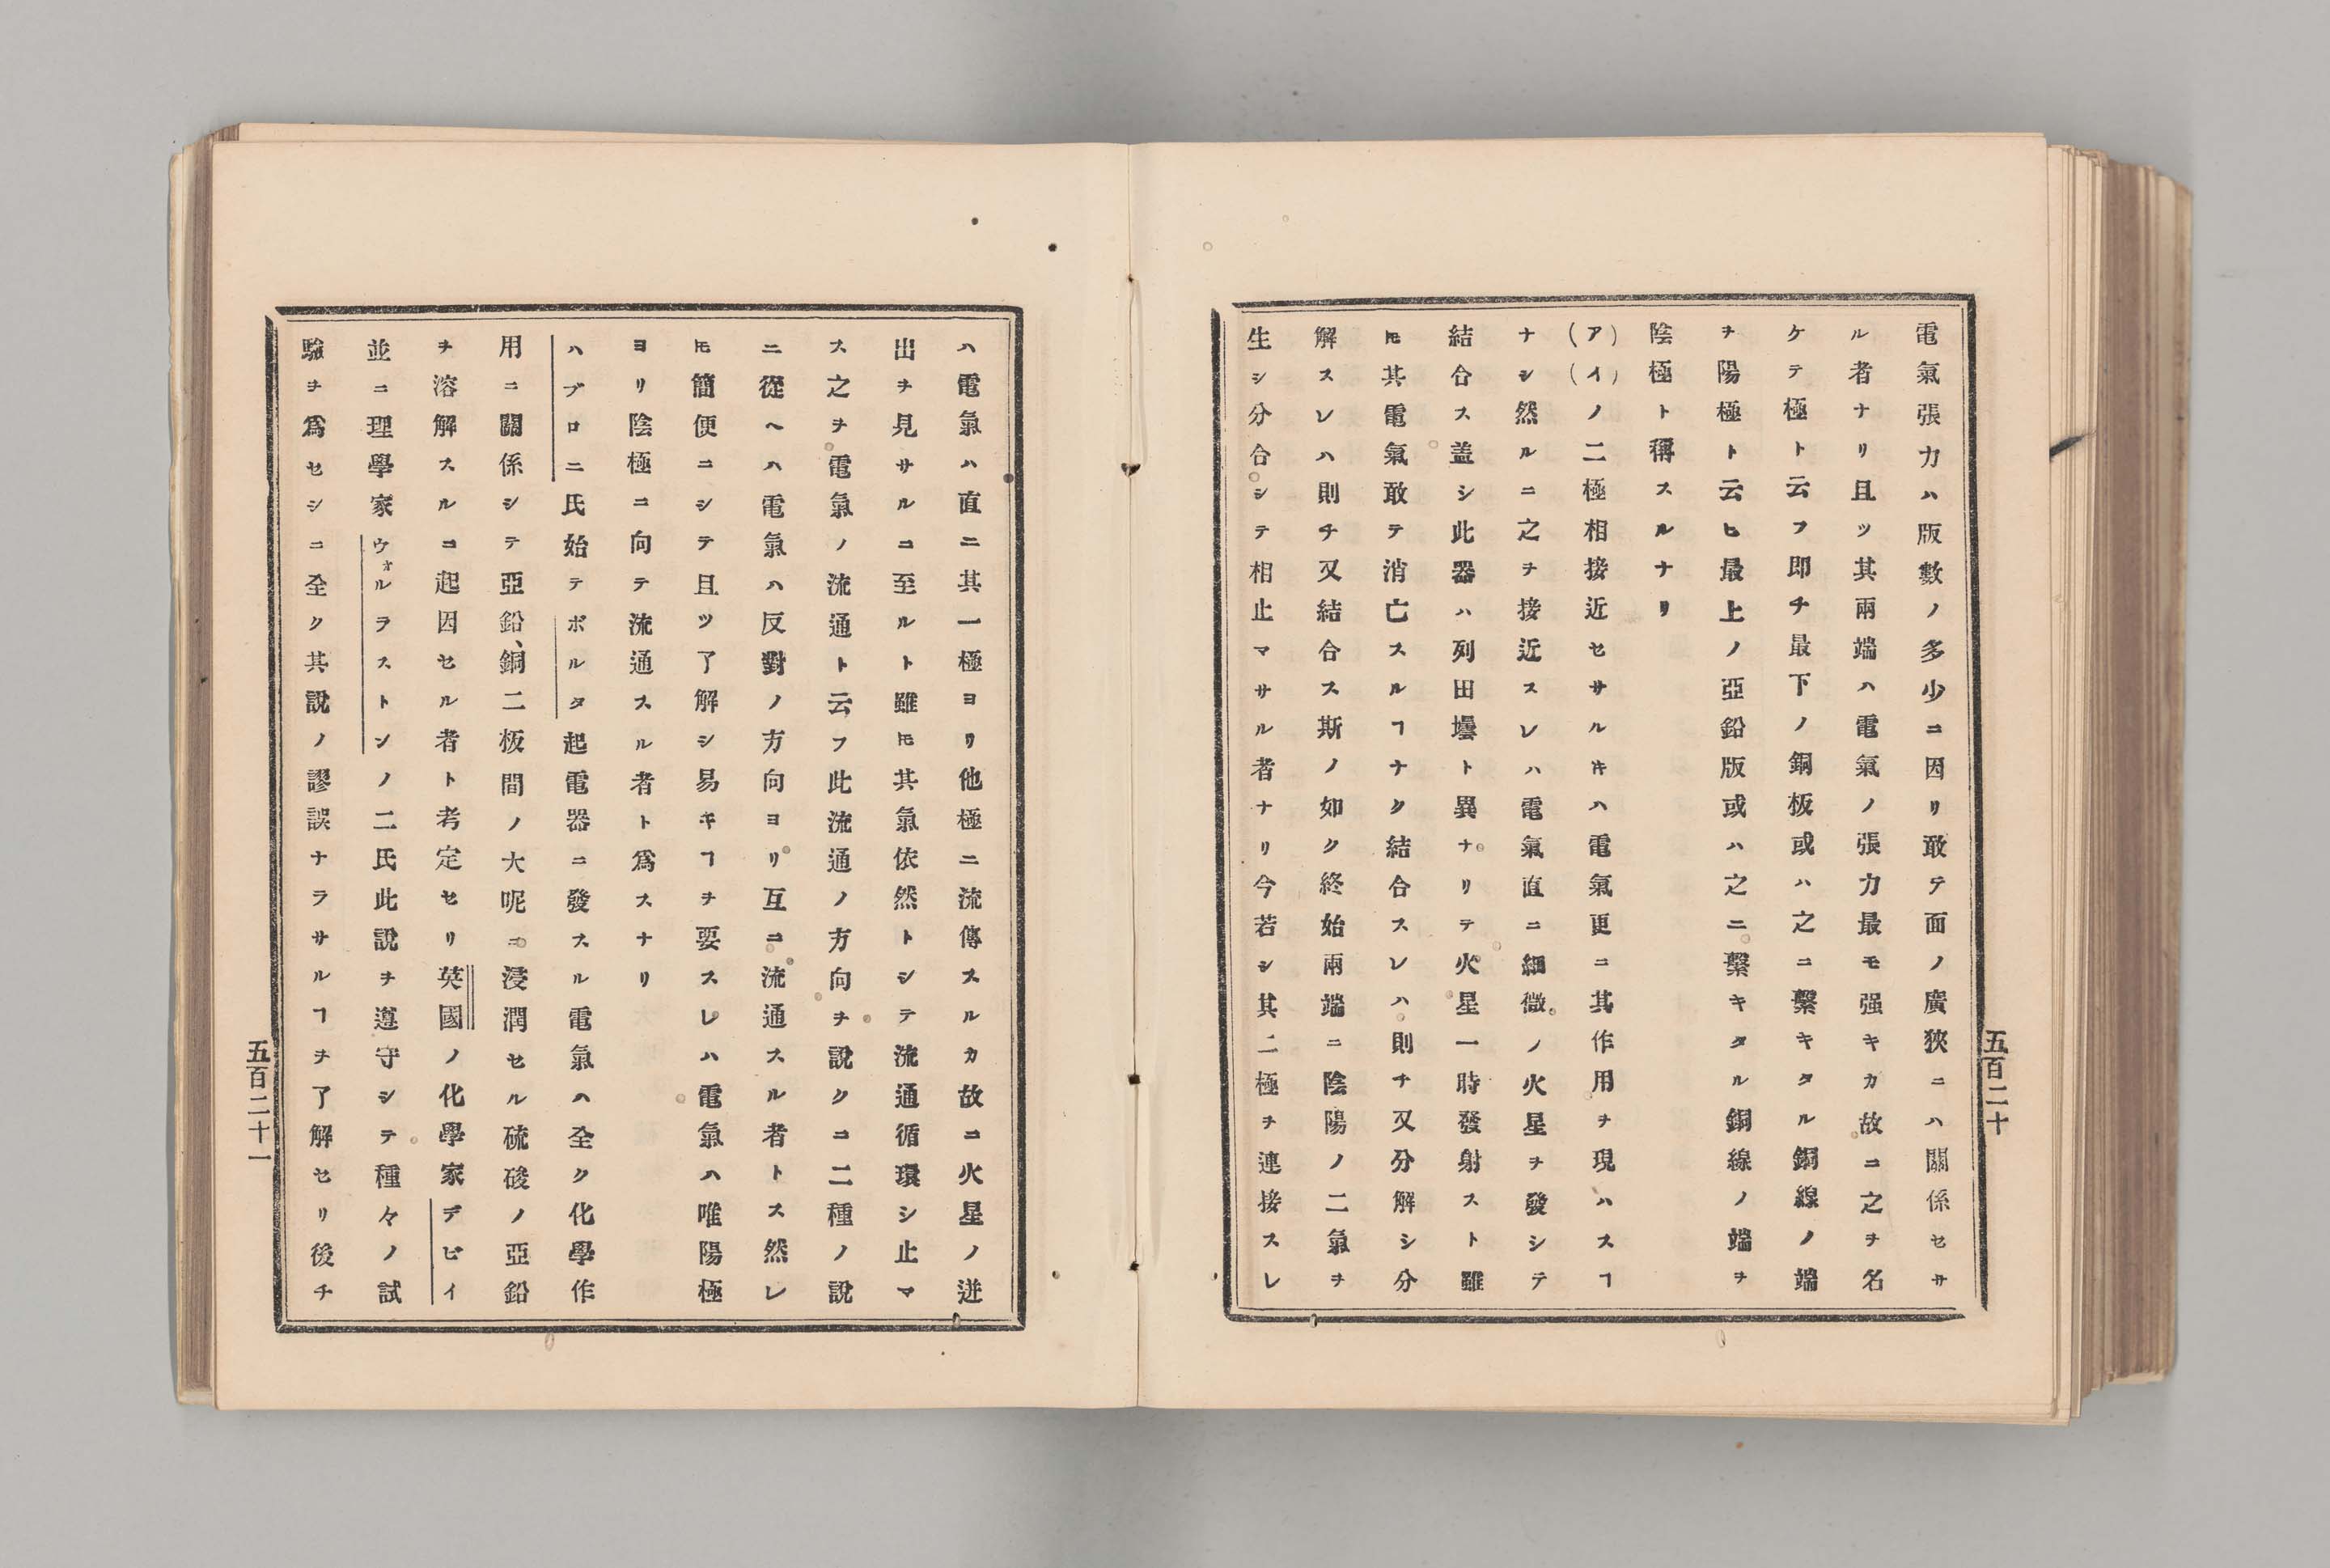 電氣張力ハ版數ノ多少ニ因リ敢テ面ノ廣狹ニハ關係セサ
ル者ナリ且ツ其兩端ハ電氣ノ張力最モ强キカ故ニ之ヲ名
ケテ極ト云フ即チ最下ノ銅板或ハ之ニ繫キタル銅線ノ端
ヲ陽極ト云ヒ最上ノ亞鉛版或ハ之ニ繫キタル銅線ノ端ヲ
陰極ト稱スルナリ
(ア)(イ)ノ二極相接近セサルキハ電氣更ニ其作用ヲ現ハスヿ
ナシ然ルニ之ヲ接近スレハ電氣直ニ細微ノ火星ヲ發シテ
結合ス蓋シ此器ハ列田壜ト異ナリテ火星一時發射スト雖
𪜈其電氣敢テ消亡スルヿナク結合スレハ則チ又分解シ分
解スレハ則チ又結合ス斯ノ如ク終始兩端ニ陰陽ノ二氣ヲ
生シ分合シテ相止マサル者ナリ今若シ其二極ヲ連接スレ
五百二十
ハ電氣ハ直ニ其一極ヨリ他極ニ流傳スルカ故ニ火星ノ迸
出ヲ見サルニ至ルト雖𪜈其氣依然トシテ流通循環シ止マ
ス之ヲ電氣ノ流通ト云フ此流通ノ方向ヲ說クニ二種ノ說
ニ從ヘハ電氣ハ反對ノ方向ヨリ互ニ流通スル者トス然レ
𪜈簡便ニシテ且ツ了解シ易キヿヲ要スレハ電氣ハ唯陽極
ヨリ陰極ニ向テ流通スル者ト爲スナリ
ハブロニ氏始テボルタ起電器ニ發スル電氣ハ全ク化學作
用ニ關係シテ亞鉛、銅二板間ノ大呢ニ浸潤セル硫酸ノ亞鉛
ヲ溶解スルニ起因セル者ト考定セリ英國ノ化學家デビイ
並ニ理學家ウォルラストンノ二氏此說ヲ遵守シテ種々ノ試
驗ヲ爲セシニ全ク其說ノ謬誤ナラサルヿヲ了解セリ後チ
五百二十一